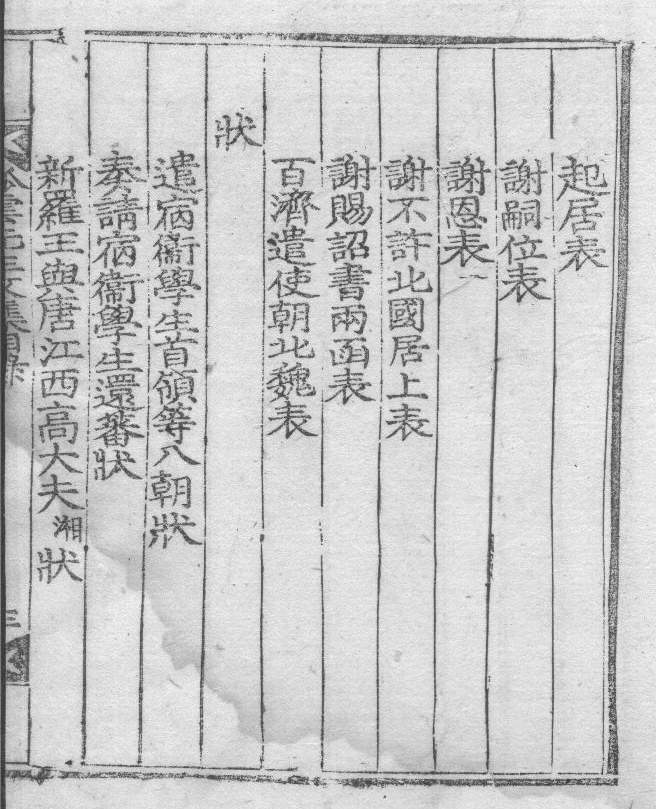 起居表
謝嗣位表
謝恩表
謝不許北國居上表
謝賜詔書兩函表
百濟遣使朝北魏表
狀
遣宿衛學生首領等入朝狀
奏請宿衛學生還蕃狀
新羅王與唐江西高大夫湘狀
孤雲先生文集目錄
三